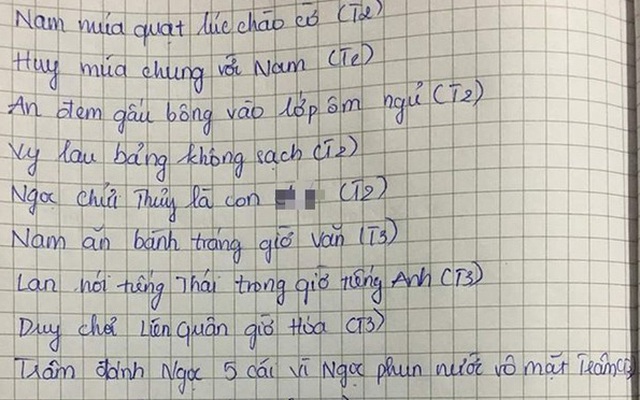 Nam múa quạt lúc chào cờ (T2)
Huy múa chung với Nam (T2)
An đem gấu bông vào lớp ôm ngủ (T2)
Vy lau bảng không sạch (T2)
Ngọc chửi Thủy là con (T2)
Nam ăn bánh tráng giờ văn (T3)
Lan nói tiếng Thái trong giờ tiếng Anh (T3)
Duy chơi Liên Quân giờ Hóa (T3)
Trâm đánh Ngọc 5 cái vì Ngọc phun nước vô mặt Trâm